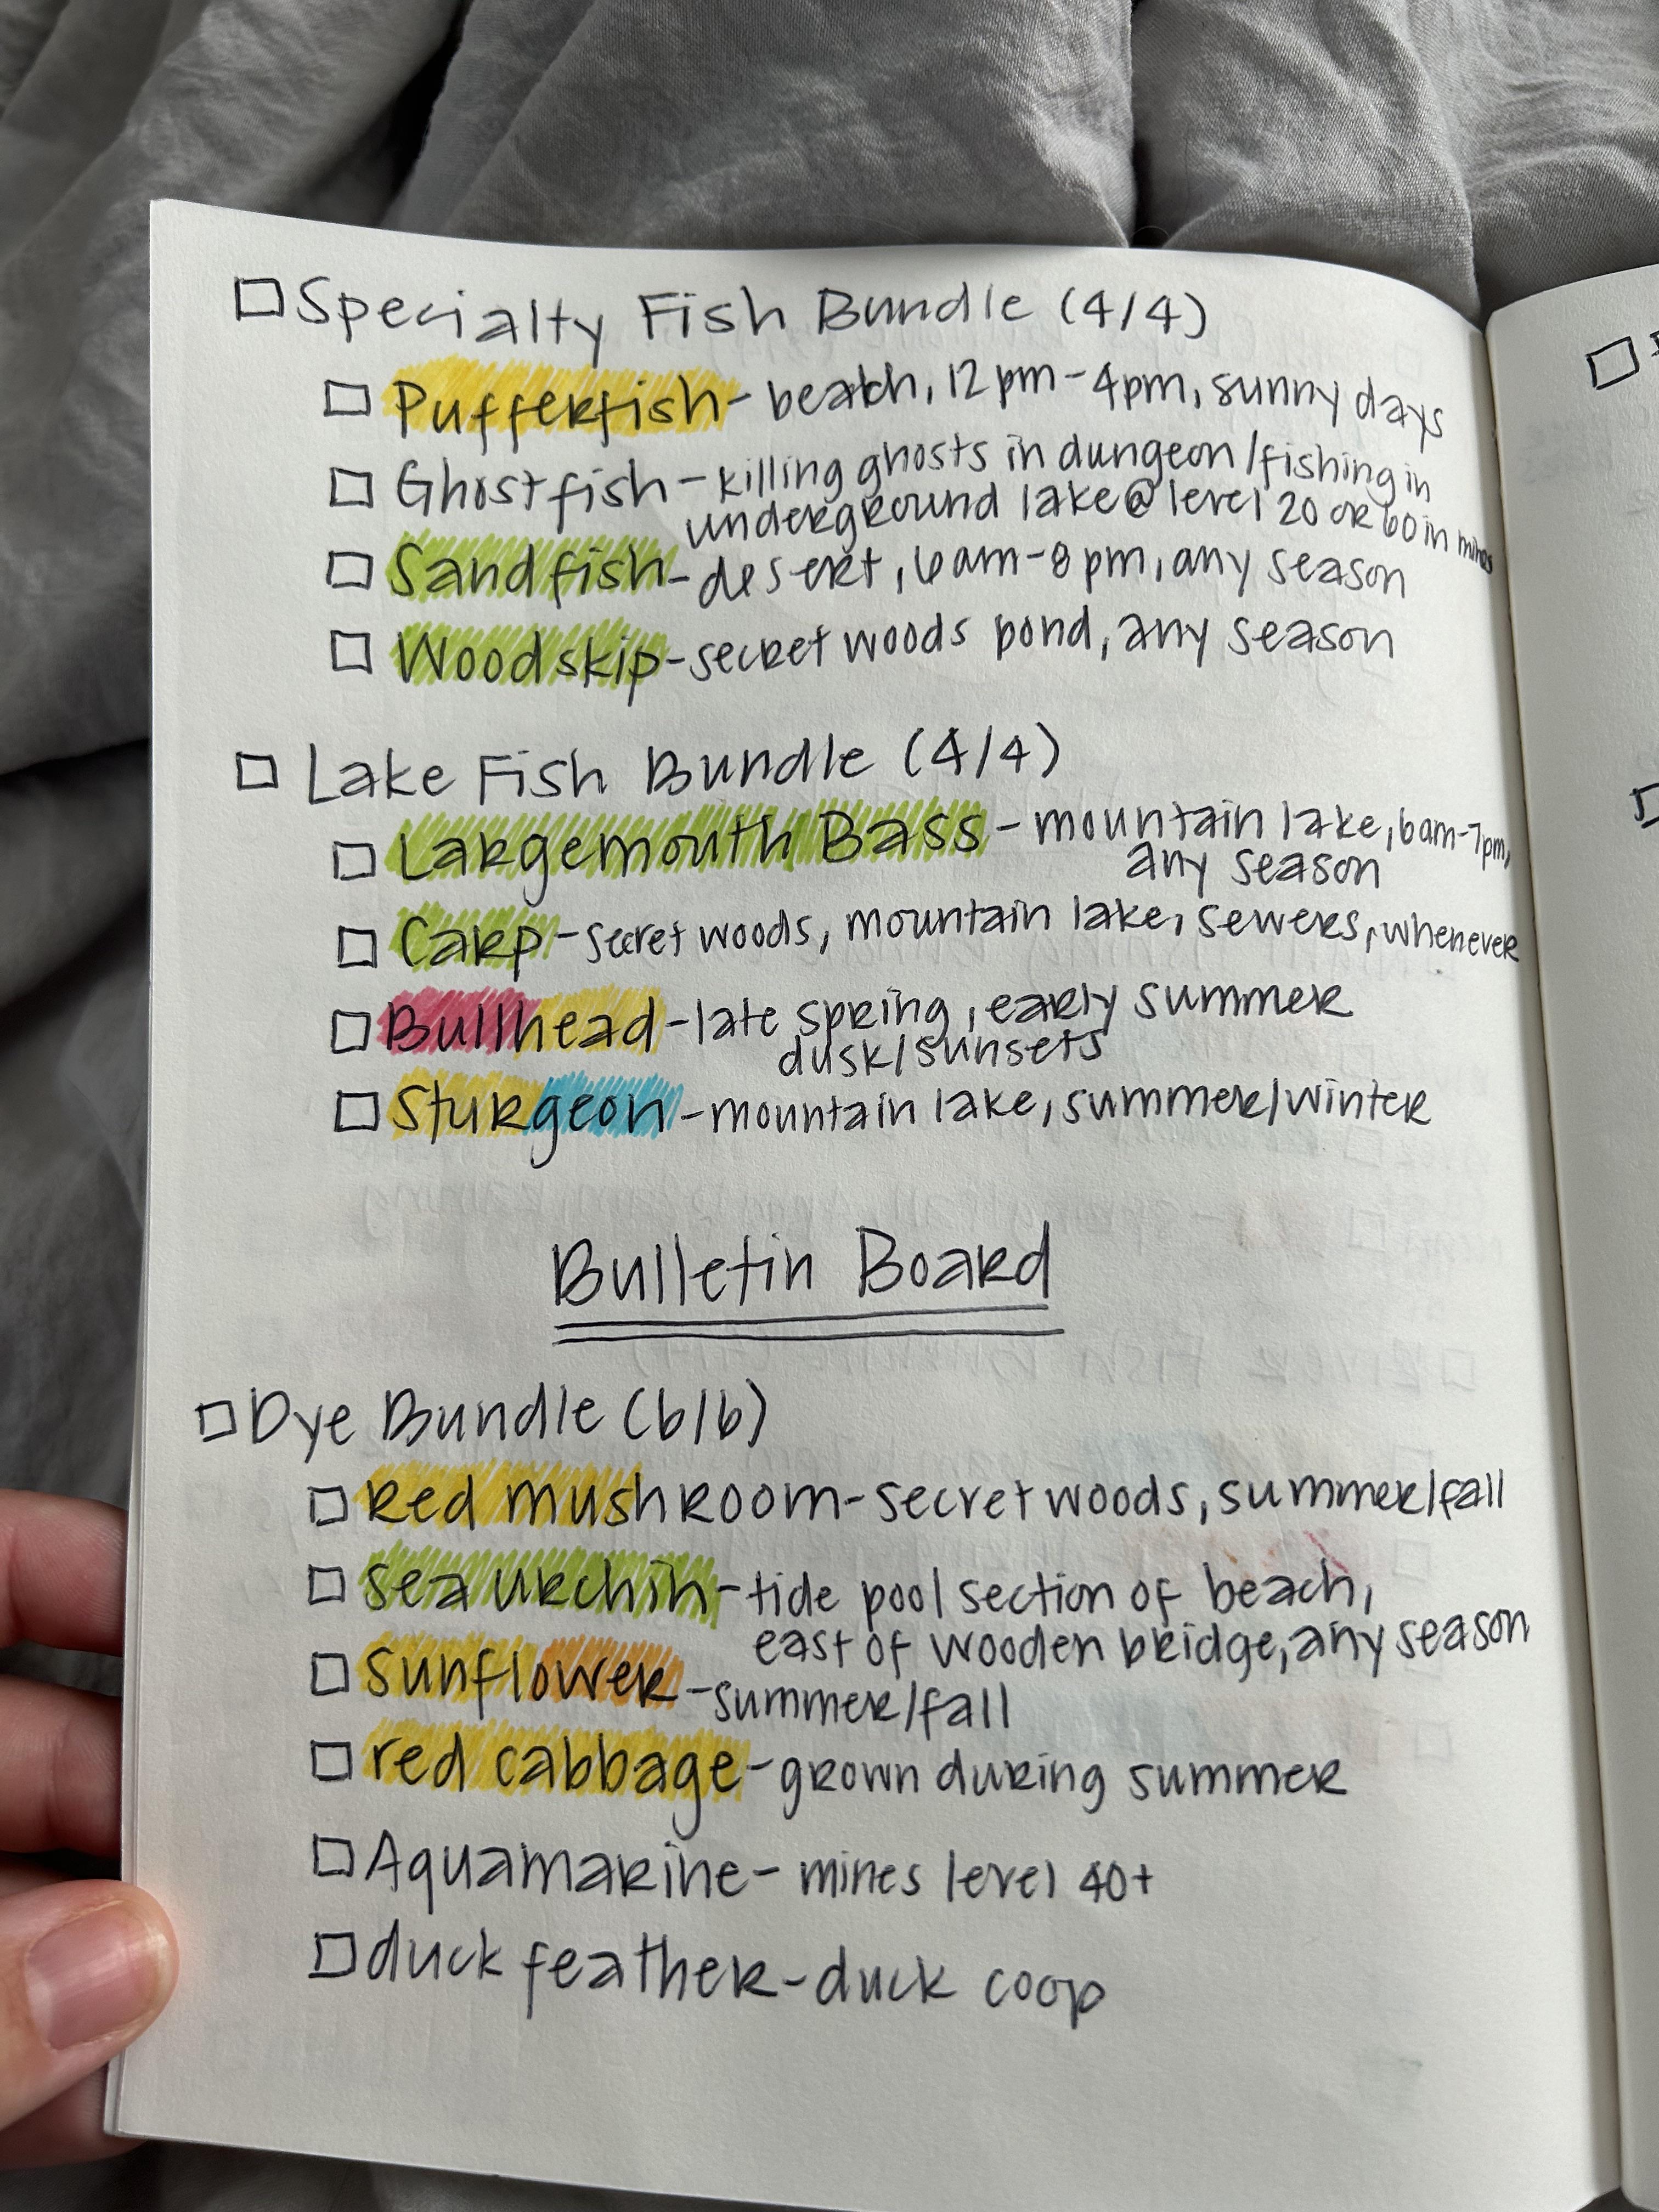 Specialty Fish Bundle (4/4)
Pufferfish - beach, 12pm-4pm, sunny days
Ghostfish - killing ghosts in dungeon/fishing in
underground lake @ level 20 or 60 in mines
Sandfish - desert, 6am-8pm, any season
Woodskip - secret woods pond, any season
Lake Fish Bundle (4/4)
Largemouth Bass - mountain lake, 6am-7pm,
any season
Carp - secret woods, mountain lake, sewers, whenever
Bullhead - late spring, early summer
dusk/sunsets
Sturgeon - mountain lake, summer/winter
Bulletin Board
Dye Bundle (6/6)
red mushroom - secret woods, summer/fall
sea urchin - tide pool section of beach,
east of wooden bridge, any season
sunflower - summer/fall
red cabbage - grown during summer
Aquamarine - mines level 40+
duck feather - duck coop